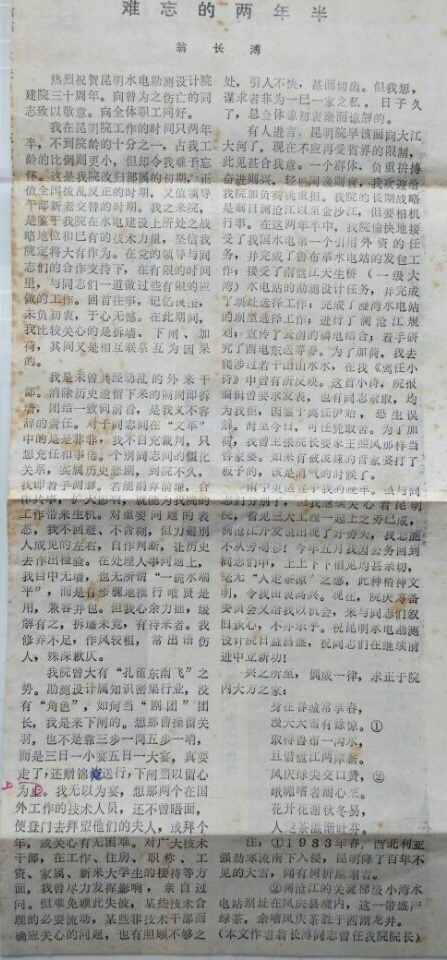 难忘的两年半
翁长溥
热烈祝贺昆明水电勘测设计院
建院三十周年。向曾为之伤亡的同
志致以敬意。向全体职工问好。
我在昆明院工作的时间只两年
半，不到院龄的十分之一，占我工
龄的比例则更小，但却令我难予忘
怀。这是我院改归部属的初期，正
值全国拨乱反正的时期，又值领导
干部新老交替的时期。我之来院，
是鉴于我院在水电建设上所处之战
略地位和已有的技术力量，坚信我
院定将大有作为。在党的领导与同
志们的合作支持下，在有限的时间
里，与同志们一道做过些有限的应
做的工作。回首往事，记忆犹
未负初衷，于心无憾。在此期间，
我比较关心的是拆墙、下闸、加
荷，其间又是相互联系互为因果
的。
我是未曾共经动乱的外来干
部。消除历史遗留下来的隔阂即拆
墙，团结一致向前看，是我义不容
辞的责任。对于同志间在“文革”
中的是是非非，我不自充裁判，只
想充任和事佬。个别同志间的僵化
关系，实属历史悲剧，到院不久，
我即着手调解。若能捐弃前嫌，合
作共事，扩大影响，就能为我院的
工作带来生机。对重要问题的表
态，我不回避、不含糊，但力避别
人成见的左右，自作判断，让历史
去作出检验。在处理人事问题上，
我目中无墙，也无所谓“一碗水端
平”，而是有步骤地推行唯贤是
用，兼容并包。但我心余力拙，缓
解有之，拆墙未竟，有待来者。我
修养不足，作风较粗，常出语伤
人，殊深歉仄。
我院曾大有“孔雀东南飞”之
势。勘测设计属知识密集行业，没
有“角色”，如何当“剧团”团
长，我是来下闸的。想那曹操留关
羽，也不是靠三步一岗五步一哨，
而是三日一小宴五日一大宴，真要
走了，还赠锦袍送行，下闸当以留心
为上。我无以为宴，想那两个在国
外工作的技术人员，还不曾晤面，
便登门去拜望他们的夫人，或拜个
年，或关心有无困难。对广大技术
干部，在工作、住房、职称、工
资、家属、新来大学生的接待等方
面，我曾尽力发挥影响，亲自过
问。但难免顾此失彼，某些技术合
理的必要流动，某些非技术干部而
确应关心的问题，也有照顾不够之
处，引人不快，甚而切齿。但我想，
谋求者非为一已一家之私，日子久
了，总会体谅初衷渐而谅解的。
有人进言，昆明院早该面向大江
大河了，现在不应再受省界的限制，
此见甚合我意。一个群体，负重拚搏
奋进则兴，轻松闲逸则衰，我欢迎给
我院加负荷挑重担。我院的长期战略
是瞩目澜沧江以至金沙江，但要相机
行事。在这两年半中，我院愉快地接
受了我国水电第一个引用外资的任
务，并完成了鲁布革水电站的发包工
作；接受了南盘江天生桥（一级大
湾）水电站的勘测设计任务，并完成
了坝址选择工作；完成了漫湾水电站
的坝型选择工作；进行了澜沧江规
划；宣传了云南的磷电结合；着手研
究了西电东送等等。为了加荷，我去
爬涉过若干山山水水，在我《离任小
诗》中曾有所反映。这首小诗，院报
编辑曾要求发表，也有同志索取，均
为我拒，因鉴于离任伊始，恐生误
解。时至今日，可任凭取舍。为了加
荷，我曾主张院长要象王熙凤那样当
管家婆。如果有被泼辣的管家婆打了
板子的，该是消气的时候了。
南宁更适宜于我的晚年。虽与同
志们分别了，但我继续关心着昆明
院，看见三大工程一起上之势已成，
澜沧江开发也出现了好势头，我怎能
不从旁唱彩！今年五月我因公务回到
同志们中，上上下下相见均甚亲切，
毫无“人走茶凉”之感，此种精神文
明，令我由衷高兴。现在，院庆筹备
委员会又给我以机会，来与同志们叙
旧谈心，不亦乐乎。祝昆明水电勘测
设计院日益昌盛，祝同志们在继续前
进中立新功！
兴之所至，偶成一律，求正于院
内大方之家：
身在春城常享春，
漫天大雪有谅惊。①
取得鲁布一两水，
且借盘江两岸新。
风庆绿尖交口赞，②
哦嘣嗜者耐心烹。
花开花谢秋冬易，
人走茶温渐吐芬。
注：①1983年春，西北利亚
强劲寒流南下入侵，昆明降了百年不
见的大雪，间有树折屋塌者。
②澜沧江的关键梯级小湾水
电站坝址在风庆县境内，这一带盛产
绿茶，余嗜风庆茶胜于西湖龙井。
(本文作者翁长溥同志曾任我院院长)